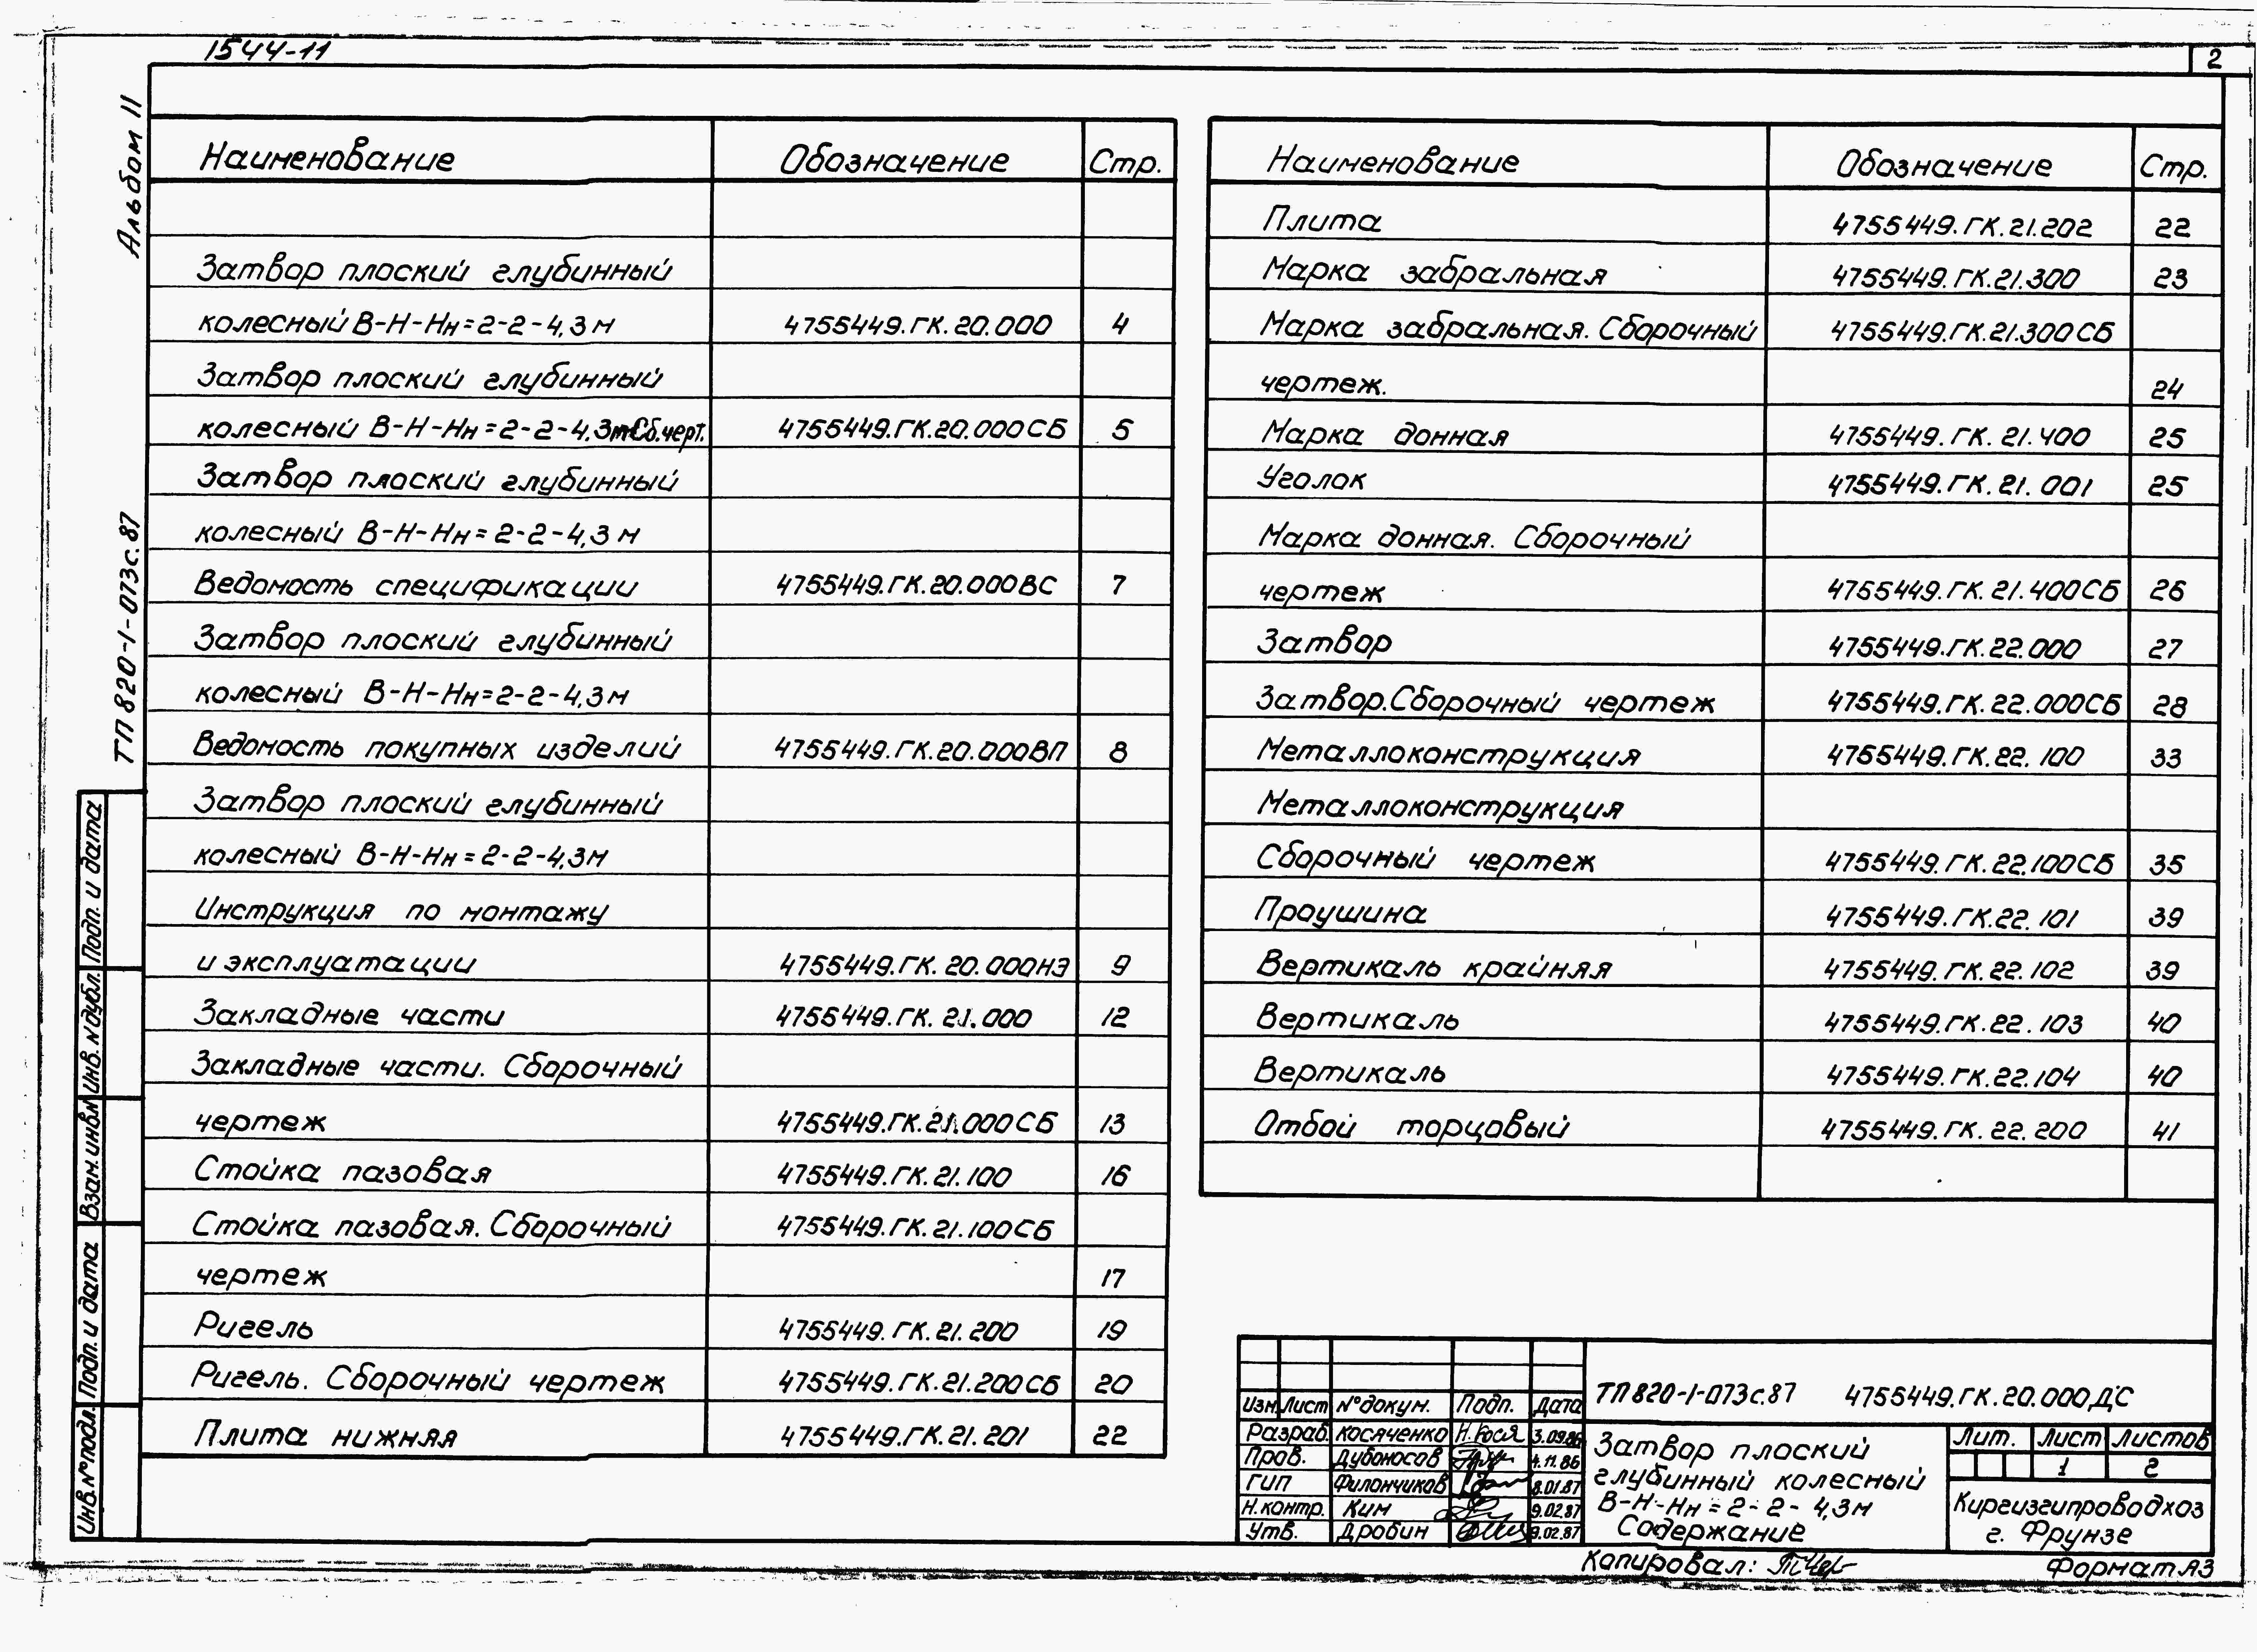 1544-11
2
Альбом 11
ТП 820-1-073с.87
Наименование Обозначение Стр.
Затвор плоский глубинный
колесный В-Н-Нн=2-2-4,3м 4755449.ГК.20.000 4
Затвор плоский глубинный
колесный В-Н-Нн=2-2-4,3м Сб.черт. 4755449.ГК.20.000СБ 5
Затвор плоский глубинный
колесный В-Н-Нн=2-2-4,3м
Ведомость спецификации 4755449.ГК.20.000ВС 7
Затвор плоский глубинный
колесный В-Н-Нн=2-2-4,3м
Ведомость покупных изделий 4755449.ГК.20.000ВП 8
Затвор плоский глубинный
колесный В-Н-Нн=2-2-4,3м
Инструкция по монтажу
и эксплуатации 4755449.ГК.20.000НЭ 9
Закладные части 4755449.ГК.21.000 12
Закладные части. Сборочный
чертеж 4755449.ГК.21.000СБ 13
Стойка пазовая 4755449.ГК.21.100 16
Стойка пазовая. Сборочный 4755449.ГК.21.100СБ
чертеж 17
Ригель 4755449.ГК.21.200 19
Ригель. Сборочный чертеж 4755449.ГК.21.200СБ 20
Плита нижняя 4755449.ГК.21.201 22
Наименование Обозначение Стр.
Плита 4755449.ГК.21.202 22
Марка забральная 4755449.ГК.21.300 23
Марка забральная. Сборочный 4755449.ГК.21.300СБ
чертеж. 24
Марка донная 4755449.ГК.21.400 25
Уголок 4755449.ГК.21.001 25
Марка донная. Сборочный
чертеж 4755449.ГК.21.400СБ 26
Затвор 4755449.ГК.22.000 27
Затвор.Сборочный чертеж 4755449.ГК.22.000СБ 28
Металлоконструкция 4755449.ГК.22.100 33
Металлоконструкция
Сборочный чертеж 4755449.ГК.22.100СБ 35
Проушина 4755449.ГК.22.101 39
Вертикаль крайняя 4755449.ГК.22.102 39
Вертикаль 4755449.ГК.22.103 40
Вертикаль 4755449.ГК.22.104 40
Отбой торцовый 4755449.ГК.22.200 41
Подп. и дата
Инв. № дубл.
Взам. инв №
Подп. и дата
Инв. № подл.
Изм. Лист № докум. Подп. Дата
Разраб. Косяченко Н.Кося 3.09.86
Пров. Дубоносов 4.11.86
ГИП Филончиков 8.01.87
Н.контр. Ким 9.02.87
Утв. Дробин 9.02.87
ТП 820-1-073с.87 4755449.ГК.20.000ДС
Затвор плоский
глубинный колесный
В-Н-Нн=2-2-4,3м
Содержание
Лит. Лист Листов
1 2
Киргизгипроводхоз
г. Фрунзе
Копировал:
Формат А3